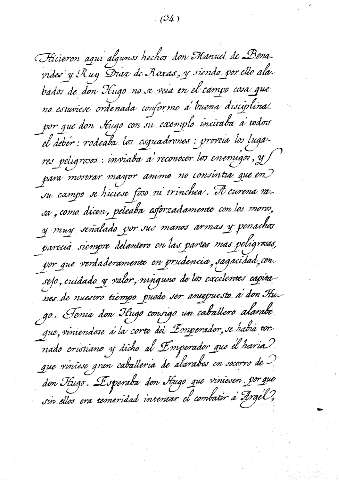 (34)
Hicieron aqui algunos hechos don Manuel de Bena-
vides y Ruy Diaz de Roxas, y siendo por ello ala-
bados de don Hugo no se veia en el campo cosa que
no estuviese ordenada conforme á buena disciplina
por que don Hugo con su exemplo incitaba á todos
el deber: rodeaba los esquadrones: proveia los luga-
res peligrosos: enviaba á reconocer los enemigos, y
para mostrar mayor animo no consintia que en
su campo se hiciese foso ni trinchea. A curena ra-
sa, como dicen, peleaba esforzadamente con los moros,
y muy señalado por sus manos armas y penachos
parecia siempre delantero en las partes mas peligrosas,
por que verdaderamente en prudencia, sagacidad, con-
sejo, cuidado y valor, ninguno de los excelentes capita-
nes de nuestro tiempo puede ser antepuesto á don Hu-
go. Tenia don Hugo consigo un caballero alarabe
que, viniendose á la corte del Emperador, se habia tor-
nado cristiano y dicho al Emperador que el haria
que viniese gran caballeria de alarabes en socorro de
don Hugo. Esperaba don Hugo que viniesen, por que
sin ellos era temeridad intentar el combatir á Argel,